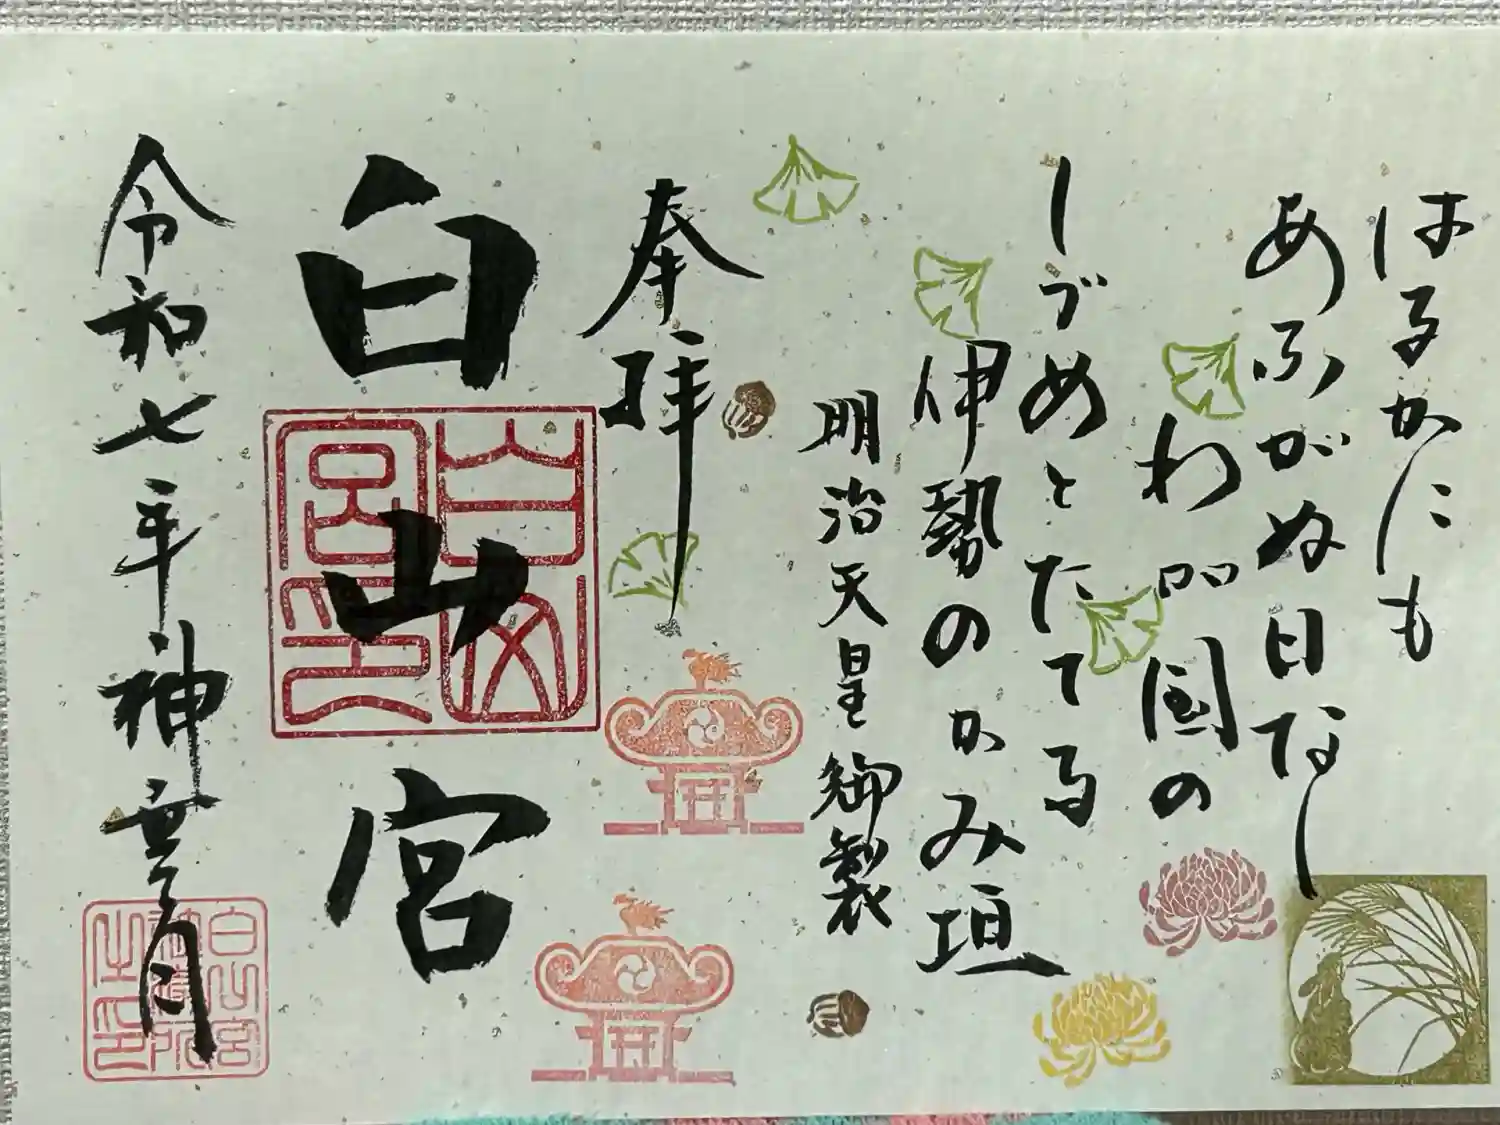 はるかにも
あふがぬ日なし
わが国の
しづめとたてる
伊勢のかみ垣
明治天皇御製
奉拝
白山宮
白山
宮印
令和七年神無月
白山宮
之印